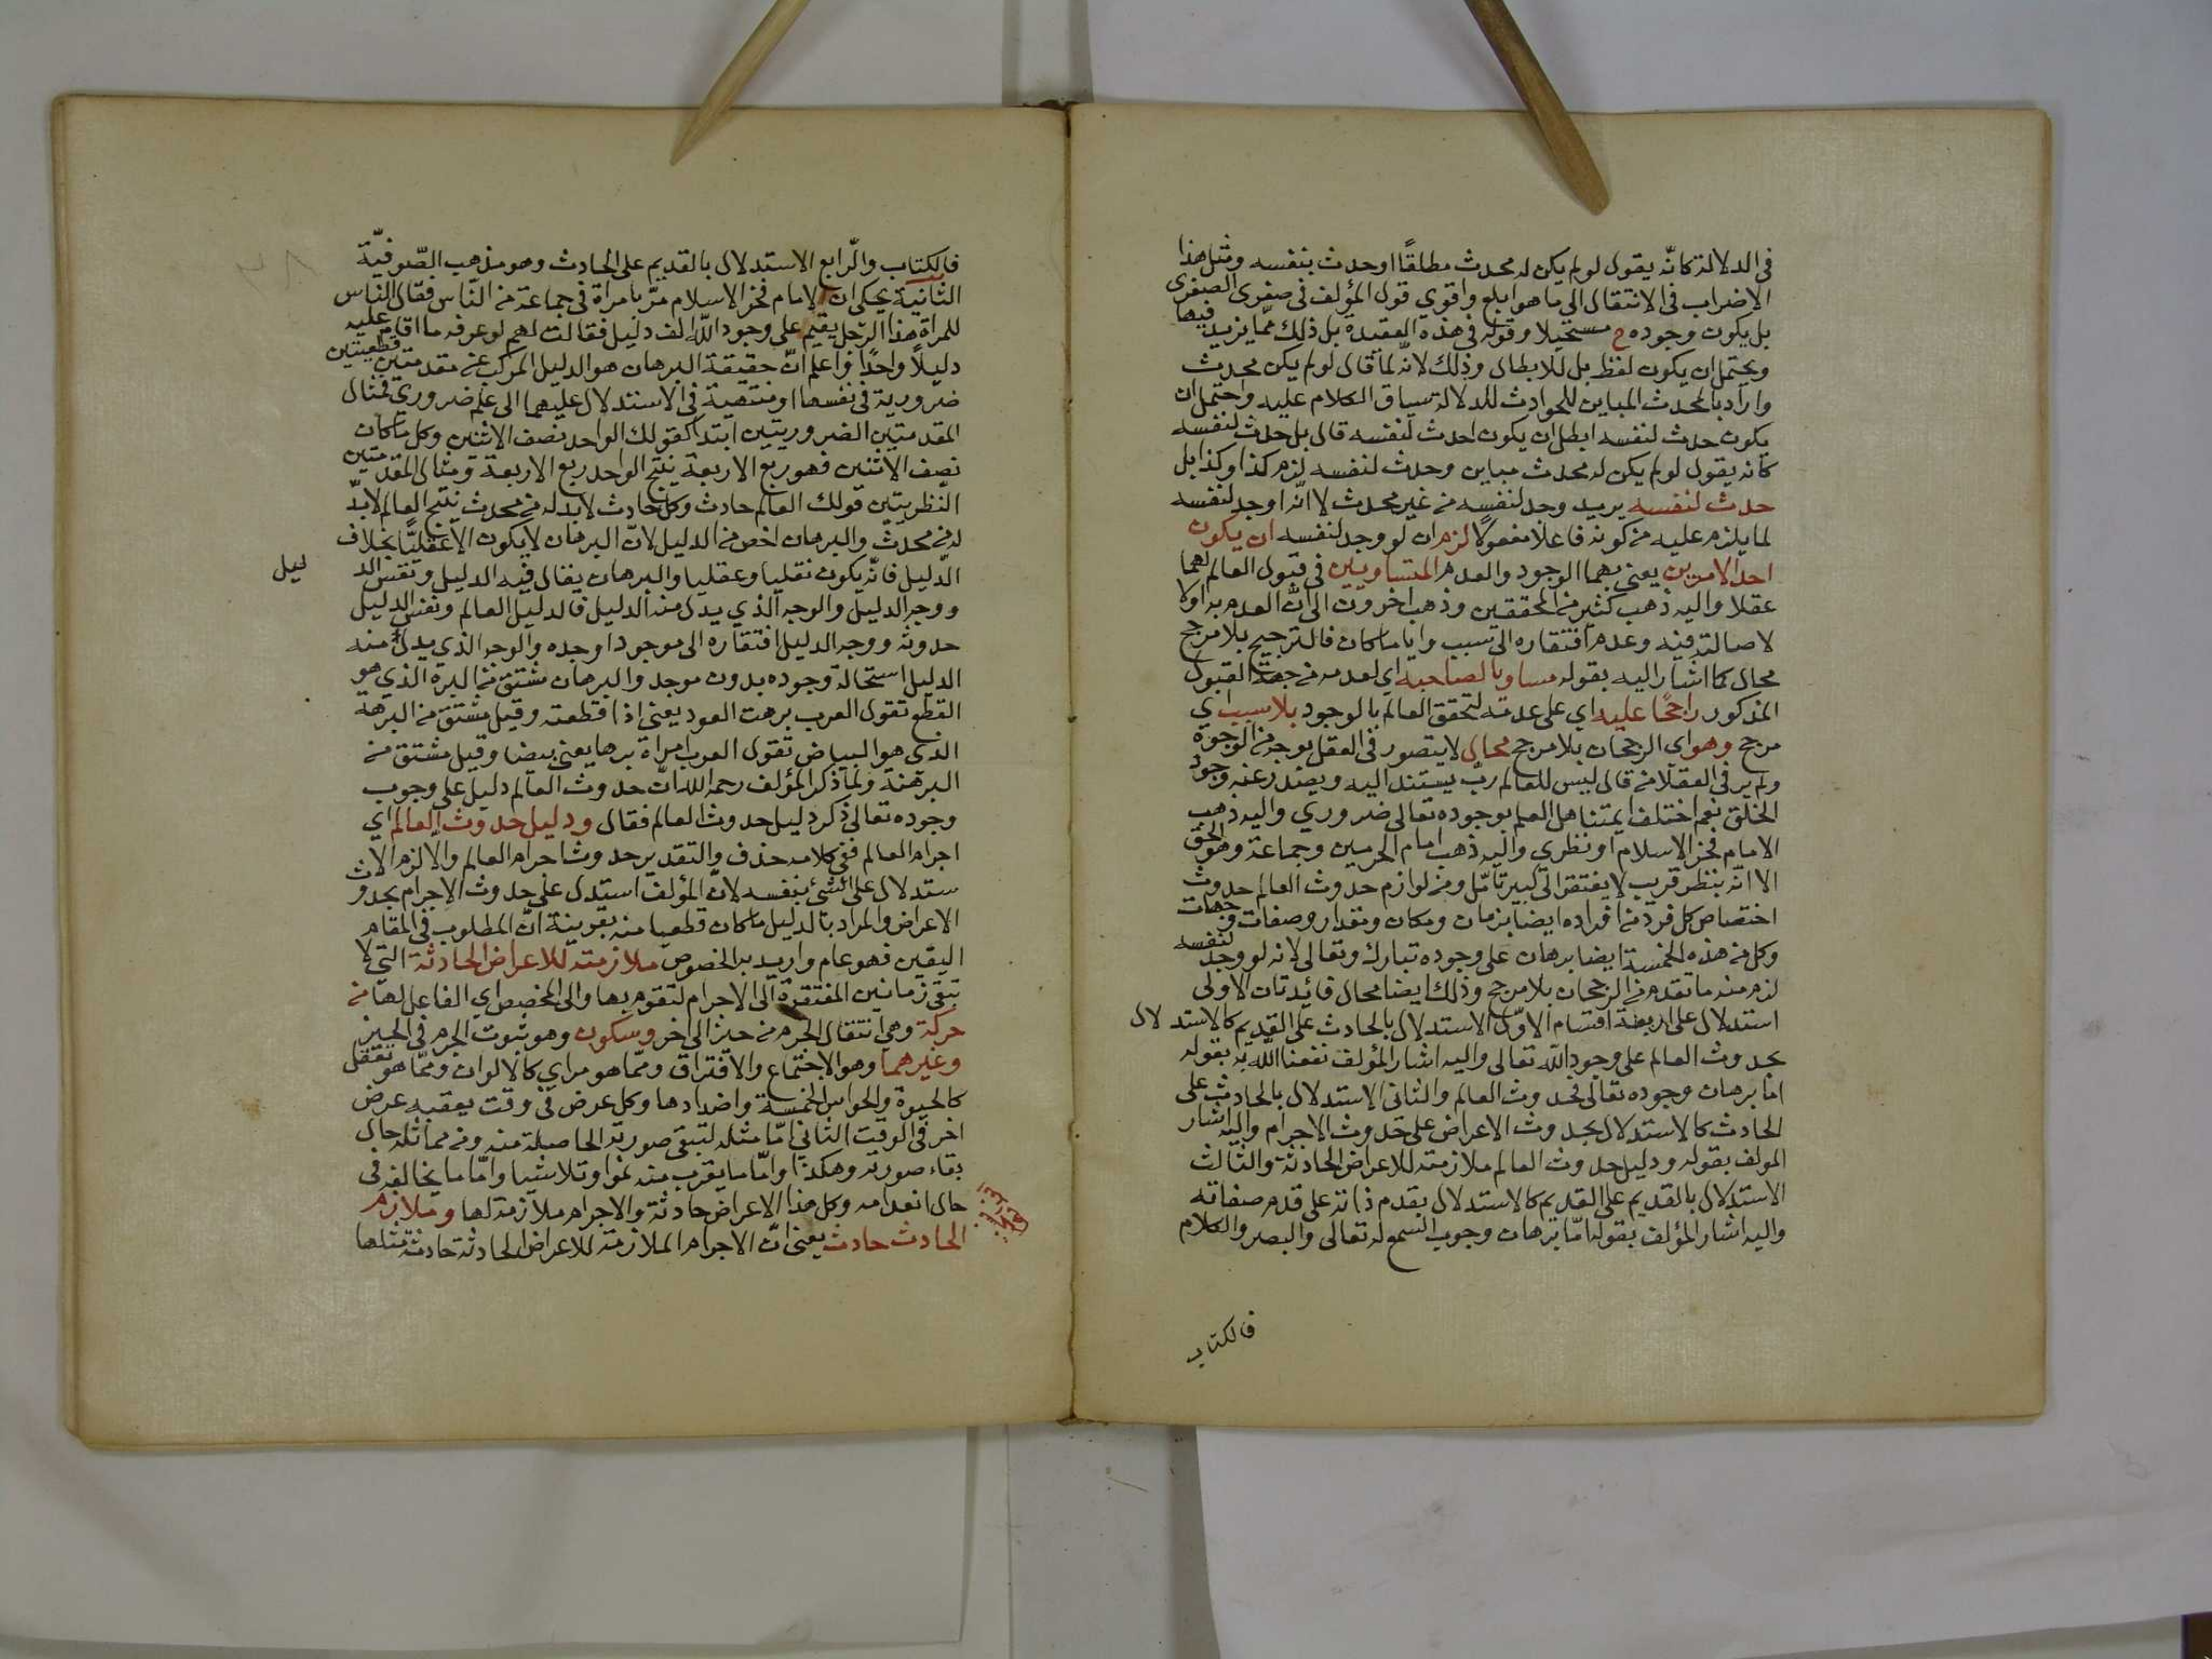 في الدلالة كانّه يقول لو لم يكن له محدث مطلقًا او حدث بنفسه ومثل هذا
الاضراب في الانتقال الى ما هو ابلغ واقوي قول المؤلف في صغرى الصغرى
بل يكون وجوده ح مستحيلا وقوله في هذه العقيدة بل ذلك ممّا يزيد فيها
ويحتمل ان يكون لفظ بل للابطال وذلك لانّه لمّا قال لو لم يكن محدث
واراد بالمحدث المباين للحوادث للدلالة سياق الكلام عليه واحتمل ان
يكون حدث لنفسه ابطل ان يكون احدث لنفسه قال بل حدث لنفسه
كانه يقول لو لم يكن له محدث مباين وحدث لنفسه لزم كذا وكذا بل
حدث لنفسه يريد وجد لنفسه من غير محدث لا انّه اوجد لنفسه
لما يلزم عليه من كونه فاعلا مفعولا لزم ان لو وجد لنفسه ان يكون
احد الامرين يعني بهما الوجود والعدم المتساويين في قبول العالم لهما
عقلا واليه ذهب كثير من المحققين وذهب اخرون الى انّ العدم به اولا
لاصالته فيه وعدم افتقاره الى سبب وايا ما كان فالترجيح بلا مرجح
محال كما اشار اليه بقوله مساويا لصاحبه اي لعدمه من جهة القبول
المذكور راجحًا عليه اي على عدمه لتحقق العالم بالوجود بلا سبب اي
مرجح وهو اي الرجحان بلا مرجح محال لا يتصور في العقل بوجه من الوجوه
ولم ير في العقلا من قال ليس للعالم ربّ يستند اليه ويصدر عنه وجود
الخلق نعم اختلف ايمتنا هل العلم بوجوده تعالى ضروري واليه ذهب
الامام فخر الاسلام او نظري واليه ذهب امام الحرمين وجماعة وهو الحق
الا انّه بنظر قريب لا يفتقر الى كبير تامّل ومن لوازم حدوث العالم حدوث
اختصاص كل فرد من افراده ايضا بزمان ومكان ومقدار وصفات وجهات
وكل من هذه الخمسة ايضا برهان على وجوده تبارك وتعالى لانه لو وجد لنفسه
لزم منه ما تقدم من الرجحان بلا مرجح وذلك ايضا محال فائدتان الاولى
استدلال على اربعة اقسام الاوّل الاستدلال بالحادث على القديم كالاستدلال
بحدوث العالم على وجود الله تعالى واليه اشار المؤلف نفعنا الله به بقوله
امّا برهان وجوده تعالى فحدوث العالم والثاني الاستدلال بالحادث على
الحادث كالاستدلال بحدوث الاعراض على حدوث الاجرام واليه اشار
المولف بقوله ودليل حدوث العالم ملازمته للاعراض الحادثة والثالث
الاستدلال بالقديم على القديم كالاستدلال بقدم ذاته على قدم صفاته
واليه اشار المؤلف بقوله امّا برهان وجوب السمع له تعالى والبصر والكلام
فالكتاب
فالكتاب والرّابع الاستدلال بالقديم على الحادث وهو مذهب الصّوفيّة
الثانية يحكى ان الامام فخر الاسلام مرّ بامراة في جماعة من النّاس فقال الناس
للمراة هذا الرّجل يقيم على وجود الله الف دليل فقالت لهم لو عرفه ما اقام عليه
دليلاً واحدًا واعلم انّ حقيقة البرهان هو الدليل المركب من مقدمتين قطعيتين
ضرورية في نفسها او منتهية في الاستدلال عليهما الى علم ضروري فمثال
المقدمتين الضروريتين ابتدا كقولك الواحد نصف الاثنين وكل ما كان
نصف الاثنين فهو ربع الاربعة ينتج الواحد ربع الاربعة ومثال المقدمتين
النّظريتين قولك العالم حادث وكل حادث لابد له من محدث ينتج العالم لابدّ
له من محدث والبرهان اخص من الدليل لانّ البرهان لا يكون الا عقليّا بخلاف
الدّليل فانّه يكون نقليا وعقليا والبرهان يقال فيه الدليل ونفس الد
ليل
ووجه الدليل والوجه الذي يدل منه الدليل فالدليل العالم ونفس الدليل
حدوثه ووجه الدليل افتقاره الى موجود اوجده والوجه الذي يدلّ منه
الدليل استحالة وجوده بدون موجد والبرهان مشتق من البره الذي هو
القطع تقول العرب برهت العود يعني اذا قطعته وقيل مشتق من البرهه
الذي هو البياض تقول العرب امراة برها يعني بيضا وقيل مشتق من
البرهنة ولما ذكر المؤلف رحمه الله انّ حدوث العالم دليل على وجوب
وجوده تعالى ذكر دليل حدوث العالم فقال ودليل حدوث العالم اي
اجرام العالم ففي كلامه حذف والتقدير حدوث اجرام العالم والا لزم الا
ستدلال على الشئ بنفسه لانّ المؤلف استدل على حدوث الاجرام بحدوث
الاعراض والمراد بالدليل ما كان قطعيا منه بقرينة انّ المطلوب في المقام
اليقين فهو عام واريد به الخصوص ملازمته للاعراض الحادثة التي لا
تبقى زمانين المفتقرة الى الاجرام لتقوم بها والى المخصص اي الفاعل لها من
حركة وهي انتقال الجرم من حيز الى اخر وسكون وهو ثبوت الجرم في الحيز
وغيرهما وهو الاجتماع والافتراق وممّا هو مراي كالالوان وممّا هو تعقل
كالحيوة والحواس الخمسة واضدادها وكل عرض في وقت يعقبه عرض
اخر في الوقت الثاني امّا مثله لتبقى صورته الحاصلة منه ومن مماثله حال
بقاء صورته وهكذا وامّا ما يقرب منه نموا وتلاشيا وامّا ما يخالفه في
حال انعدامه وكل هذا الاعراض حادثة والاجرام ملازمة لها وملازم
الحادث حادث يعني انّ الاجرام الملازمة للاعراض الحادثة حادثة مثلها